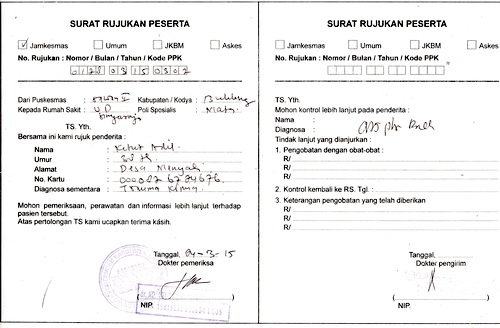 SURAT RUJUKAN PESERTA
Jamkesmas Umum JKBM Askes
No. Rujukan : Nomor / Bulan / Tahun / Kode PPK
Dari Puskesmas : Kabupaten / Kodya : Buleleng
Kepada Rumah Sakit : Poli Spesialis : Mata
TS. Yth.
Bersama ini kami rujuk penderita :
Nama : Ketut Adil
Umur :
Alamat : Desa Menyali
No. Kartu :
Diagnosa sementara : Trauma Kimia
Mohon pemeriksaan, perawatan dan informasi lebih lanjut terhadap
pasien tersebut.
Atas pertolongan TS kami ucapkan terima kasih.
Tanggal, 04-3-15
Dokter pemeriksa
( )
NIP.
SURAT RUJUKAN PESERTA
Jamkesmas Umum JKBM Askes
No. Rujukan : Nomor / Bulan / Tahun / Kode PPK
TS. Yth.
Mohon kontrol lebih lanjut pada penderita :
Nama :
Diagnosa :
Tindak lanjut yang dianjurkan :
1. Pengobatan dengan obat-obat :
R/
R/
R/
2. Kontrol kembali ke RS. Tgl. :
3. Keterangan pengobatan yang telah diberikan
R/
R/
R/
Tanggal,
Dokter pengirim
( )
NIP.